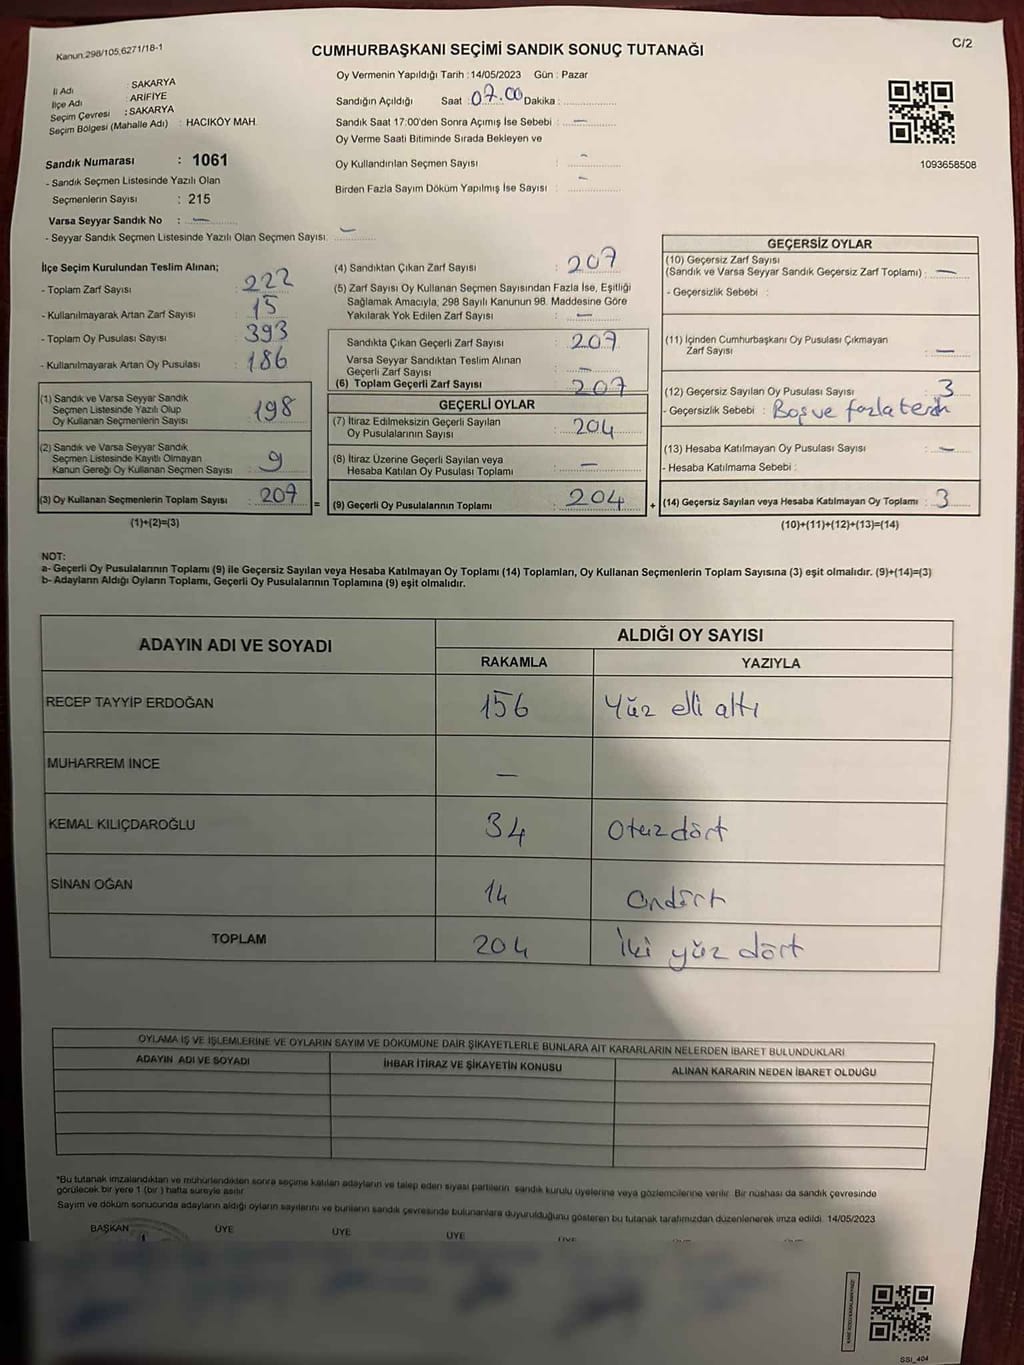 Kanun:298/105,6271/18-1
C/2
CUMHURBAŞKANI SEÇİMİ SANDIK SONUÇ TUTANAĞI
İl Adı : SAKARYA
İlçe Adı : ARİFİYE
Seçim Çevresi : SAKARYA
Seçim Bölgesi (Mahalle Adı) : HACIKÖY MAH.
Sandık Numarası : 1061
- Sandık Seçmen Listesinde Yazılı Olan
Seçmenlerin Sayısı : 215
Varsa Seyyar Sandık No : —
- Seyyar Sandık Seçmen Listesinde Yazılı Olan Seçmen Sayısı: —
Oy Vermenin Yapıldığı Tarih :14/05/2023 Gün : Pazar
Sandığın Açıldığı Saat :07.00 Dakika :
Sandık Saat 17:00'den Sonra Açımış İse Sebebi : —
Oy Verme Saati Bitiminde Sırada Bekleyen ve
Oy Kullandırılan Seçmen Sayısı : -
Birden Fazla Sayım Döküm Yapılmış İse Sayısı : -
1093658508
İlçe Seçim Kurulundan Teslim Alınan;
- Toplam Zarf Sayısı : 222
- Kullanılmayarak Artan Zarf Sayısı : 15
- Toplam Oy Pusulası Sayısı : 393
- Kullanılmayarak Artan Oy Pusulası : 186
(1) Sandık ve Varsa Seyyar Sandık
Seçmen Listesinde Yazılı Olup
Oy Kullanan Seçmenlerin Sayısı : 198
(2) Sandık ve Varsa Seyyar Sandık
Seçmen Listesinde Kayıtlı Olmayan
Kanun Gereği Oy Kullanan Seçmen Sayısı : 9
(3) Oy Kullanan Seçmenlerin Toplam Sayısı : 207
(1)+(2)=(3)
(4) Sandıktan Çıkan Zarf Sayısı : 207
(5) Zarf Sayısı Oy Kullanan Seçmen Sayısından Fazla İse, Eşitliği
Sağlamak Amacıyla, 298 Sayılı Kanunun 98. Maddesine Göre
Yakılarak Yok Edilen Zarf Sayısı : —
Sandıkta Çıkan Geçerli Zarf Sayısı : 207
Varsa Seyyar Sandıktan Teslim Alınan
Geçerli Zarf Sayısı : —
(6) Toplam Geçerli Zarf Sayısı : 207
GEÇERLİ OYLAR
(7) İtiraz Edilmeksizin Geçerli Sayılan
Oy Pusulalarının Sayısı : 204
(8) İtiraz Üzerine Geçerli Sayılan veya
Hesaba Katılan Oy Pusulası Toplamı : —
= (9) Geçerli Oy Pusulalarının Toplamı : 204 +
GEÇERSİZ OYLAR
(10) Geçersiz Zarf Sayısı
(Sandık ve Varsa Seyyar Sandık Geçersiz Zarf Toplamı) : —
- Geçersizlik Sebebi :
(11) İçinden Cumhurbaşkanı Oy Pusulası Çıkmayan
Zarf Sayısı : —
(12) Geçersiz Sayılan Oy Pusulası Sayısı : 3
- Geçersizlik Sebebi : Boş ve fazla tercih
(13) Hesaba Katılmayan Oy Pusulası Sayısı : —
- Hesaba Katılmama Sebebi :
(14) Geçersiz Sayılan veya Hesaba Katılmayan Oy Toplamı : 3
(10)+(11)+(12)+(13)=(14)
NOT:
a- Geçerli Oy Pusulalarının Toplamı (9) ile Geçersiz Sayılan veya Hesaba Katılmayan Oy Toplamı (14) Toplamları, Oy Kullanan Seçmenlerin Toplam Sayısına (3) eşit olmalıdır. (9)+(14)=(3)
b- Adayların Aldığı Oyların Toplamı, Geçerli Oy Pusulalarının Toplamına (9) eşit olmalıdır.
ADAYIN ADI VE SOYADI
ALDIĞI OY SAYISI
RAKAMLA YAZIYLA
RECEP TAYYİP ERDOĞAN 156 Yüz elli altı
MUHARREM İNCE —
KEMAL KILIÇDAROĞLU 34 Otuz dört
SİNAN OĞAN 14 Ondört
TOPLAM 204 İki yüz dört
OYLAMA İŞ VE İŞLEMLERİNE VE OYLARIN SAYIM VE DÖKÜMÜNE DAİR ŞİKAYETLERLE BUNLARA AİT KARARLARIN NELERDEN İBARET BULUNDUKLARI
ADAYIN ADI VE SOYADI İHBAR İTİRAZ VE ŞİKAYETİN KONUSU ALINAN KARARIN NEDEN İBARET OLDUĞU
*Bu tutanak imzalandıktan ve mühürlendikten sonra seçime katılan adayların ve talep eden siyasi partilerin sandık kurulu üyelerine veya gözlemcilerine verilir. Bir nüshası da sandık çevresinde
görülecek bir yere 1 (bir ) hafta süreyle asılır.
Sayım ve döküm sonucunda adayların aldığı oyların sayılarını ve bunların sandık çevresinde bulunanlara duyurulduğunu gösteren bu tutanak tarafımızdan düzenlenerek imza edildi. 14/05/2023
BAŞKAN ÜYE ÜYE ÜYE ÜYE
SSI_404